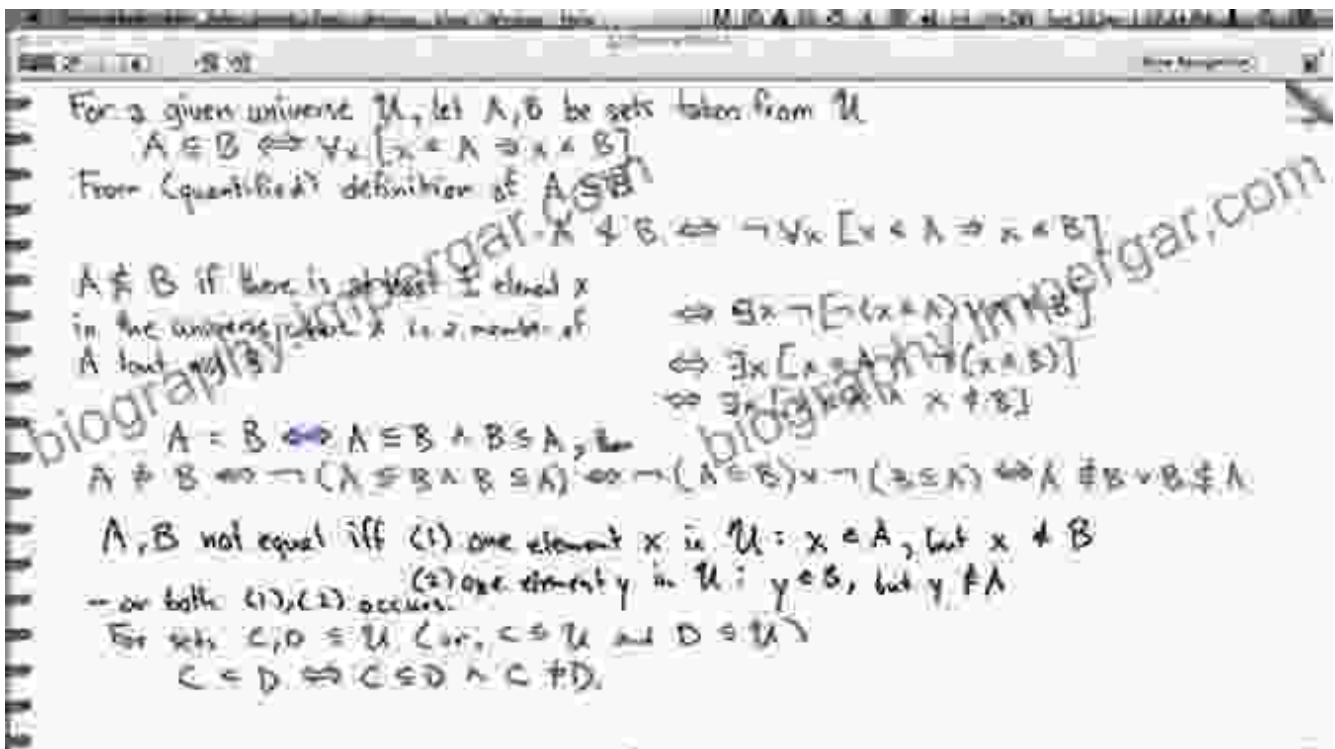 For a given universe 𝒰, let A, B be sets taken from 𝒰
A ⊆ B ⇔ ∀x [x ∈ A ⇒ x ∈ B]
From (quantified) definition of A ⊆ B
A ⊈ B ⇔ ¬∀x [x ∈ A ⇒ x ∈ B]
A ⊈ B if there is at least 1 element x
in the universe where x is a member of
A but not B
⇔ ∃x ¬[¬(x ∈ A) ∨ x ∈ B]
⇔ ∃x [x ∈ A ∧ ¬(x ∈ B)]
⇔ ∃x [x ∈ A ∧ x ∉ B]
A = B ⇔ A ⊆ B ∧ B ⊆ A, then
A ≠ B ⇔ ¬(A ⊆ B ∧ B ⊆ A) ⇔ ¬(A ⊆ B) ∨ ¬(B ⊆ A) ⇔ A ⊈ B ∨ B ⊈ A
A, B not equal iff (1) one element x in 𝒰 : x ∈ A, but x ∉ B
(2) one element y in 𝒰 : y ∈ B, but y ∉ A
- or both (1), (2) occurs.
For sets C, D ⊆ 𝒰 (or, C ⊆ 𝒰 and D ⊆ 𝒰)
C ⊂ D ⇔ C ⊆ D ∧ C ≠ D.
biography.impergar.com
biography.impergar.com